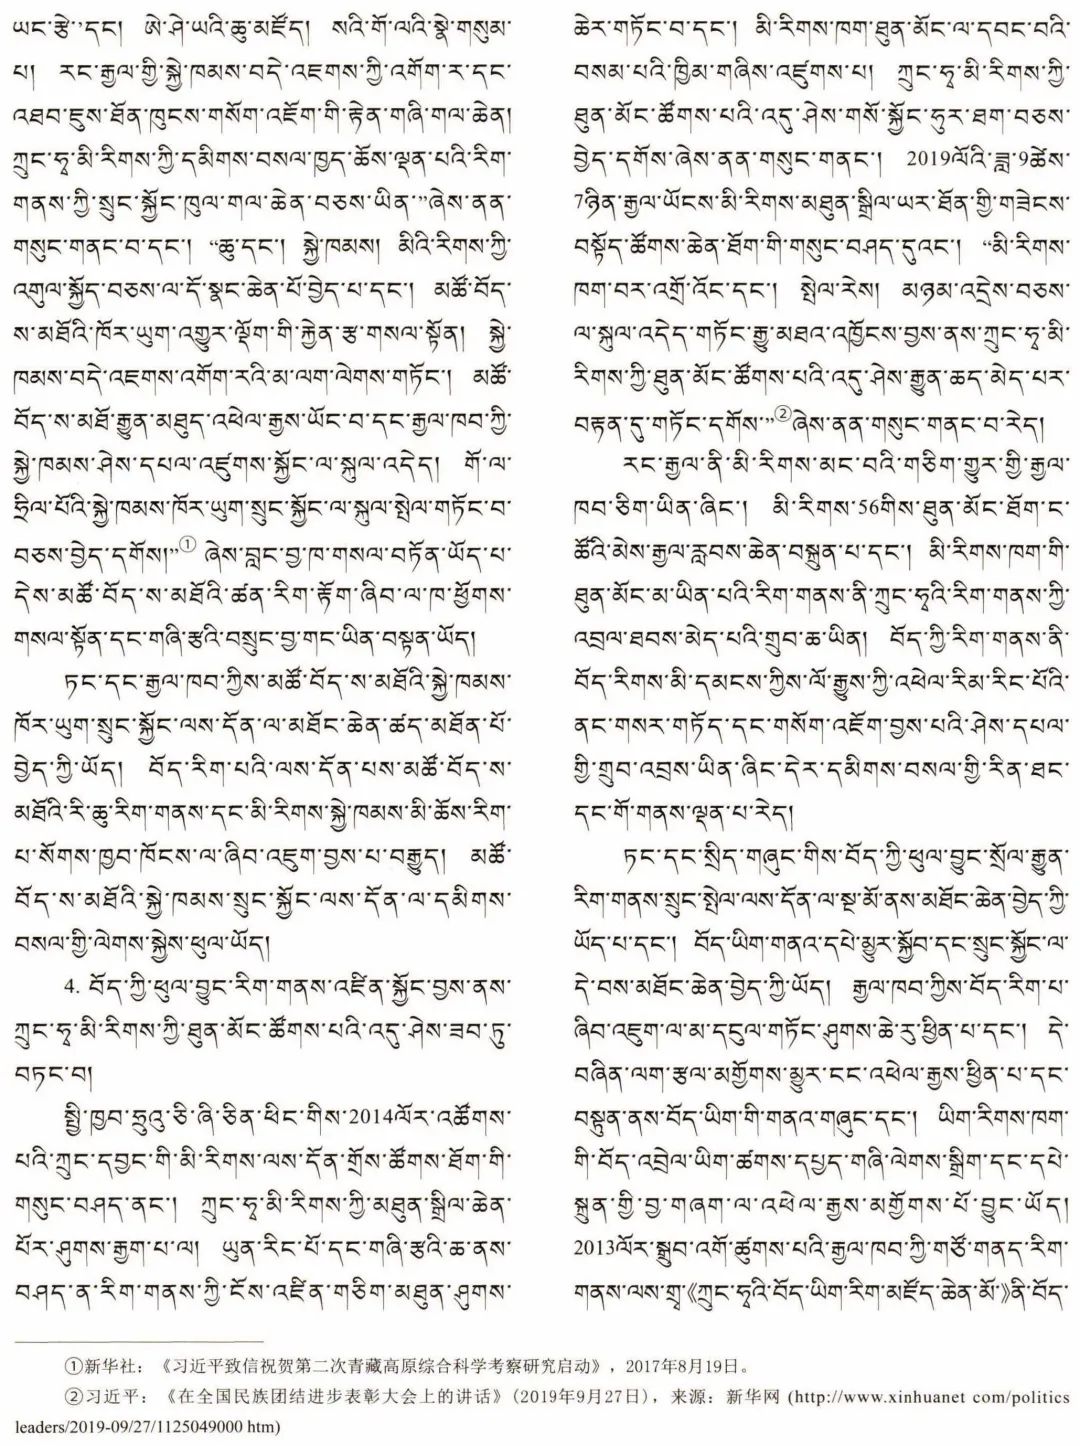 ཡང་རྩེ་’དང༌། ཨེ་ཤེ་ཡའི་ཆུ་མཛོད། སའི་གོ་ལའི་སྣེ་གསུམ་
པ། རང་རྒྱལ་གྱི་སྐྱེ་ཁམས་བདེ་འཇགས་ཀྱི་འགོག་ར་དང་
འཐབ་ཇུས་ཐོན་ཁུངས་གསོག་འཇོག་གི་རྟེན་གཞི་གལ་ཆེན།
ཀྲུང་ཧྭ་མི་རིགས་ཀྱི་དམིགས་བསལ་ཁྱད་ཆོས་ལྡན་པའི་རིག་
གནས་ཀྱི་སྲུང་སྐྱོང་ཁུལ་གལ་ཆེན་བཅས་ཡིན་”ཞེས་ནན་
གསུང་གནང་བ་དང༌། “ཆུ་དང༌། སྐྱེ་ཁམས། མིའི་རིགས་ཀྱི་
འགུལ་སྐྱོད་བཅས་ལ་དོ་སྣང་ཆེན་པོ་བྱེད་པ་དང༌། མཚོ་བོད་
ས་མཐོའི་ཁོར་ཡུག་འགྱུར་ལྡོག་གི་རྐྱེན་རྩ་གསལ་སྟོན། སྐྱེ་
ཁམས་བདེ་འཇགས་འགོག་རའི་མ་ལག་ལེགས་གཏོང༌། མཚོ་
བོད་ས་མཐོ་རྒྱུན་མཐུད་འཕེལ་རྒྱས་ཡོང་བ་དང་རྒྱལ་ཁབ་ཀྱི་
སྐྱེ་ཁམས་ཤེས་དཔལ་འཛུགས་སྐྱོང་ལ་སྐུལ་འདེད། གོ་ལ་
ཧྲིལ་པོའི་སྐྱེ་ཁམས་ཁོར་ཡུག་སྲུང་སྐྱོང་ལ་སྐུལ་སྤེལ་གཏོང་བ་
བཅས་བྱེད་དགོས།”① ཞེས་བླང་བྱ་ཁ་གསལ་བཏོན་ཡོད་པ་
དེས་མཚོ་བོད་ས་མཐོའི་ཚན་རིག་རྟོག་ཞིབ་ལ་ཁ་ཕྱོགས་
གསལ་སྟོན་དང་གཞི་རྩའི་བསྲུང་བྱ་གང་ཡིན་བསྟན་ཡོད།
ཏང་དང་རྒྱལ་ཁབ་ཀྱིས་མཚོ་བོད་ས་མཐོའི་སྐྱེ་ཁམས་
ཁོར་ཡུག་སྲུང་སྐྱོང་ལས་དོན་ལ་མཐོང་ཆེན་ཚད་མཐོན་པོ་
བྱེད་ཀྱི་ཡོད། བོད་རིག་པའི་ལས་དོན་པས་མཚོ་བོད་ས་
མཐོའི་རི་ཆུ་རིག་གནས་དང་མི་རིགས་སྐྱེ་ཁམས་མི་ཆོས་རིག་
པ་སོགས་ཁྱབ་ཁོངས་ལ་ཞིབ་འཇུག་བྱས་པ་བརྒྱུད། མཚོ་
བོད་ས་མཐོའི་སྐྱེ་ཁམས་སྲུང་སྐྱོང་ལས་དོན་ལ་དམིགས་
བསལ་གྱི་ལེགས་སྐྱེས་ཕུལ་ཡོད།
4. བོད་ཀྱི་ཕུལ་བྱུང་རིག་གནས་འཛིན་སྐྱོང་བྱས་ནས་
ཀྲུང་ཧྭ་མི་རིགས་ཀྱི་ཐུན་མོང་ཚོགས་པའི་འདུ་ཤེས་ཟབ་ཏུ་
བཏང་བ།
སྤྱི་ཁྱབ་ཧྲུའུ་ཅི་ཞི་ཅིན་ཕིང་གིས་2014ལོར་འཚོགས་
པའི་ཀྲུང་དབྱང་གི་མི་རིགས་ལས་དོན་གྲོས་ཚོགས་ཐོག་གི་
གསུང་བཤད་ནང༌། ཀྲུང་ཧྭ་མི་རིགས་ཀྱི་མཐུན་སྒྲིལ་ཆེན་
པོར་ཤུགས་རྒྱག་པ་ལ། ཡུན་རིང་པོ་དང་གཞི་རྩའི་ཆ་ནས་
བཤད་ན་རིག་གནས་ཀྱི་ངོས་འཛིན་གཅིག་མཐུན་ཤུགས་
ཆེར་གཏོང་བ་དང༌། མི་རིགས་ཁག་ཐུན་མོང་ལ་དབང་བའི་
བསམ་པའི་ཁྱིམ་གཞིས་འཛུགས་པ། ཀྲུང་ཧྭ་མི་རིགས་ཀྱི་
ཐུན་མོང་ཚོགས་པའི་འདུ་ཤེས་གསོ་སྐྱོང་ཧུར་ཐག་བཅས་
བྱེད་དགོས་ཞེས་ནན་གསུང་གནང༌། 2019ལོའི་ཟླ་9ཚེས་
7ཉིན་རྒྱལ་ཡོངས་མི་རིགས་མཐུན་སྒྲིལ་ཡར་ཐོན་གྱི་གཟེངས་
བསྟོད་ཚོགས་ཆེན་ཐོག་གི་གསུང་བཤད་དུའང༌། “མི་རིགས་
ཁག་བར་འགྲོ་འོང་དང༌། སྤེལ་རེས། མཉམ་འདྲེས་བཅས་
ལ་སྐུལ་འདེད་གཏོང་རྒྱུ་མཐའ་འཁྱོངས་བྱས་ནས་ཀྲུང་ཧྭ་མི་
རིགས་ཀྱི་ཐུན་མོང་ཚོགས་པའི་འདུ་ཤེས་རྒྱུན་ཆད་མེད་པར་
བརྟན་དུ་གཏོང་དགོས་”②ཞེས་ནན་གསུང་གནང་བ་རེད།
རང་རྒྱལ་ནི་མི་རིགས་མང་བའི་གཅིག་གྱུར་གྱི་རྒྱལ་
ཁབ་ཅིག་ཡིན་ཞིང༌། མི་རིགས་56གིས་ཐུན་མོང་ཐོག་ང་
ཚོའི་མེས་རྒྱལ་རླབས་ཆེན་བསྐྲུན་པ་དང༌། མི་རིགས་ཁག་གི་
ཐུན་མོང་མ་ཡིན་པའི་རིག་གནས་ནི་ཀྲུང་ཧྭའི་རིག་གནས་ཀྱི་
འབྲལ་ཐབས་མེད་པའི་གྲུབ་ཆ་ཡིན། བོད་ཀྱི་རིག་གནས་ནི་
བོད་རིགས་མི་དམངས་ཀྱིས་ལོ་རྒྱུས་ཀྱི་འཕེལ་རིམ་རིང་པོའི་
ནང་གསར་གཏོད་དང་གསོག་འཇོག་བྱས་པའི་ཤེས་དཔལ་
གྱི་གྲུབ་འབྲས་ཡིན་ཞིང་དེར་དམིགས་བསལ་གྱི་རིན་ཐང་
དང་གོ་གནས་ལྡན་པ་རེད།
ཏང་དང་སྲིད་གཞུང་གིས་བོད་ཀྱི་ཕུལ་བྱུང་སྲོལ་རྒྱུན་
རིག་གནས་སྲུང་སྤེལ་ལས་དོན་ལ་སྔ་མོ་ནས་མཐོང་ཆེན་བྱེད་ཀྱི་
ཡོད་པ་དང༌། བོད་ཡིག་གནའ་དཔེ་མྱུར་སྐྱོབ་དང་སྲུང་སྐྱོང་ལ་
དེ་བས་མཐོང་ཆེན་བྱེད་ཀྱི་ཡོད། རྒྱལ་ཁབ་ཀྱིས་བོད་རིག་པ་
ཞིབ་འཇུག་ལ་མ་དངུལ་གཏོང་ཤུགས་ཆེ་རུ་ཕྱིན་པ་དང༌། དེ་
བཞིན་ལག་རྩལ་མགྱོགས་མྱུར་ངང་འཕེལ་རྒྱས་ཕྱིན་པ་དང་
བསྟུན་ནས་བོད་ཡིག་གི་གནའ་གཞུང་དང༌། ཡིག་རིགས་ཁག་
གི་བོད་འབྲེལ་ཡིག་ཚགས་དཔྱད་གཞི་ལེགས་སྒྲིག་དང་དཔེ་
སྐྲུན་གྱི་བྱ་གཞག་ལ་འཕེལ་རྒྱས་མགྱོགས་པོ་བྱུང་ཡོད།
2013ལོར་སྒྲུབ་འགོ་ཚུགས་པའི་རྒྱལ་ཁབ་ཀྱི་གཙོ་གནད་རིག་
གནས་ལས་གྲྭ་《ཀྲུང་ཧྭའི་བོད་ཡིག་རིག་མཛོད་ཆེན་མོ་》ནི་བོད་
①新华社：《习近平致信祝贺第二次青藏高原综合科学考察研究启动》，2017年8月19日。
②习近平：《在全国民族团结进步表彰大会上的讲话》(2019年9月27日)，来源：新华网 (http://www.xinhuanet com/politics
leaders/2019-09/27/1125049000 htm)